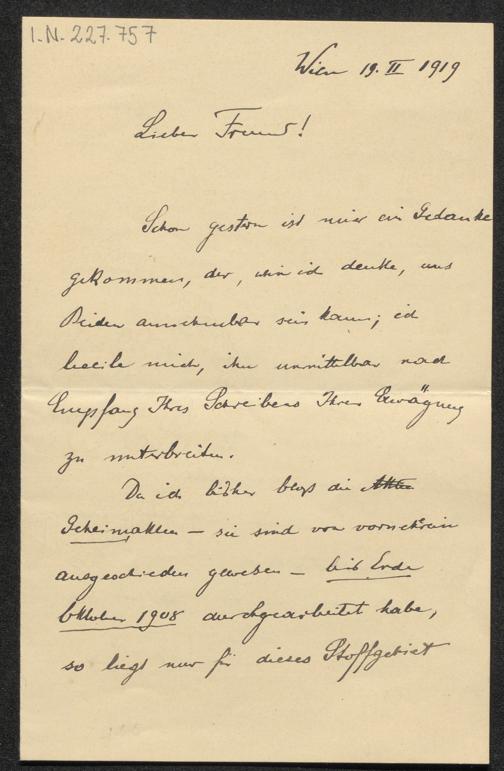 I.N. 227.757
Wien 19. II 1919
Lieber Freund!
Schon gestern ist mir ein Gedanke
gekommen, der, wie ich denke, uns
Beiden annehmbar sein kann; ich
beeile mich, ihn unmittelbar nach
Empfang Ihres Schreibens Ihrer Erwägung
zu unterbreiten.
Da ich bisher bloß die Akten
Geheimakten – sie sind von vornherein
ausgeschieden gewesen – bis Ende
Oktober 1908 durchgearbeitet habe,
so liegt nur für dieses Stoffgebiet